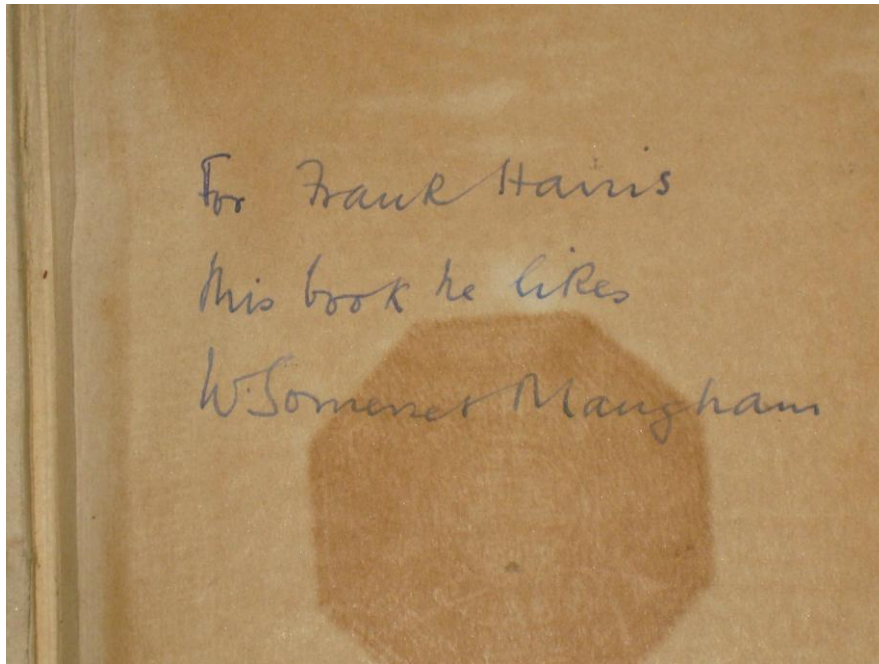 For Frank Harris
this book he likes
W. Somerset Maugham